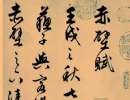 赤壁賦
壬戌之秋七
蘇子與客
赤壁之下清